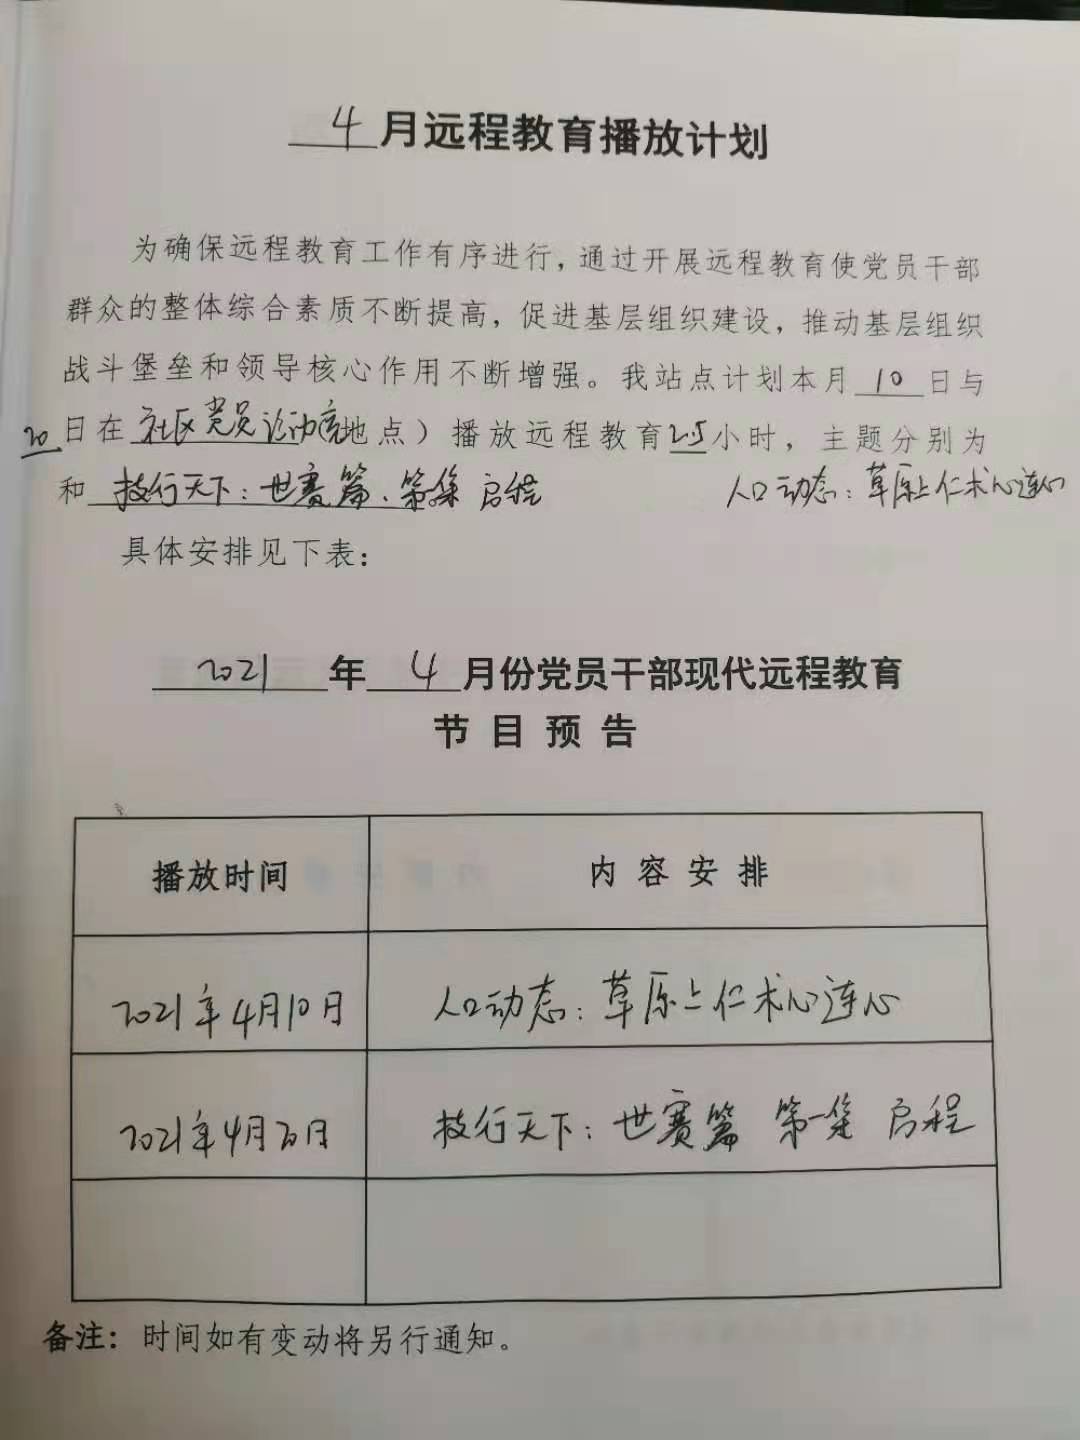 4月远程教育播放计划
为确保远程教育工作有序进行，通过开展远程教育使党员干部
群众的整体综合素质不断提高，促进基层组织建设，推动基层组织
战斗堡垒和领导核心作用不断增强。我站点计划本月10日与
20日在社区党员活动室地点）播放远程教育2.5小时，主题分别为
人口动态：草原上仁术心连心
和技行天下：世赛篇、第一集 启程
具体安排见下表：
2021年4月份党员干部现代远程教育
节目预告
播放时间 内容安排
2021年4月10日 人口动态：草原上仁术心连心
2021年4月20日 技行天下：世赛篇 第一集 启程
备注：时间如有变动将另行通知。